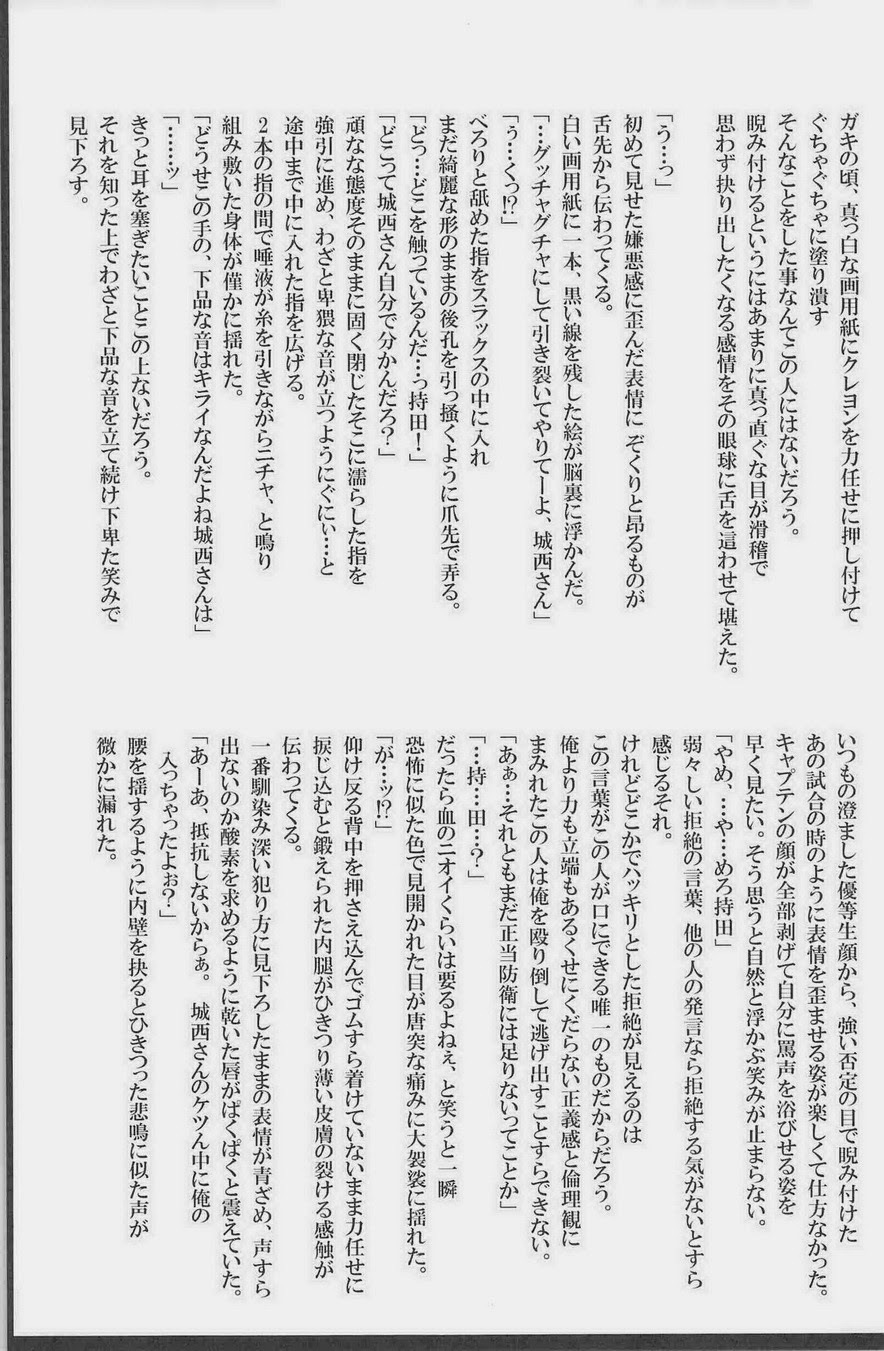 ガキの頃、真っ白な画用紙にクレヨンを力任せに押し付けて
ぐちゃぐちゃに塗り潰す
そんなことをした事なんてこの人にはないだろう。
睨み付けるというにはあまりに真っ直ぐな目が滑稽で
思わず抉り出したくなる感情をその眼球に舌を這わせて堪えた。
「う…っ」
初めて見せた嫌悪感に歪んだ表情に ぞくりと昂るものが
舌先から伝わってくる。
白い画用紙に一本、黒い線を残した絵が脳裏に浮かんだ。
「…グッチャグチャにして引き裂いてやりてーよ、城西さん」
「ぅ…くっ!?」
べろりと舐めた指をスラックスの中に入れ
まだ綺麗な形のままの後孔を引っ掻くように爪先で弄る。
「どっ…どこを触っているんだ…っ持田!」
「どこって城西さん自分で分かんだろ?」
頑なな態度そのままに固く閉じたそこに濡らした指を
強引に進め、わざと卑猥な音が立つようにぐにぃ…と
途中まで中に入れた指を広げる。
2本の指の間で唾液が糸を引きながらニチャ、と鳴り
組み敷いた身体が僅かに揺れた。
「どうせこの手の、下品な音はキライなんだよね城西さんは」
「……ッ」
きっと耳を塞ぎたいことこの上ないだろう。
それを知った上でわざと下品な音を立て続け下卑た笑みで
見下ろす。
いつもの澄ました優等生顔から、強い否定の目で睨み付けた
あの試合の時のように表情を歪ませる姿が楽しくて仕方なかった。
キャプテンの顔が全部剥げて自分に罵声を浴びせる姿を
早く見たい。そう思うと自然と浮かぶ笑みが止まらない。
「やめ、…や…めろ持田」
弱々しい拒絶の言葉、他の人の発言なら拒絶する気がないとすら
感じるそれ。
けれどどこかでハッキリとした拒絶が見えるのは
この言葉がこの人が口にできる唯一のものだからだろう。
俺より力も立端もあるくせにくだらない正義感と倫理観に
まみれたこの人は俺を殴り倒して逃げ出すことすらできない。
「あぁ…それともまだ正当防衛には足りないってことか」
「…持…田…?」
だったら血のニオイくらいは要るよねぇ、と笑うと一瞬
恐怖に似た色で見開かれた目が唐突な痛みに大袈裟に揺れた。
「が…ッ!?」
仰け反る背中を押さえ込んでゴムすら着けていないまま力任せに
捩じ込むと鍛えられた内腿がひきつり薄い皮膚の裂ける感触が
伝わってくる。
一番馴染み深い犯り方に見下ろしたままの表情が青ざめ、声すら
出ないのか酸素を求めるように乾いた唇がぱくぱくと震えていた。
「あーあ、抵抗しないからぁ。 城西さんのケツん中に俺の
入っちゃったよぉ?」
腰を揺するように内壁を抉るとひきつった悲鳴に似た声が
微かに漏れた。